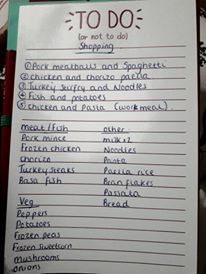 TO DO
(or not to do)
Shopping
① Pork meatballs and Spaghetti
② chicken and chorizo paella
③ Turkey stirfry and Noodles
④ Fish and potatoes
⑤ chicken and Pasta (work meal).
meat/Fish other.
Pork mince milk x2
Frozen chicken Noodles
Chorizo Pasta
Turkey steaks Paella rice
Basa fish Bran flakes
Passata
Veg Bread
Peppers
Potatoes
Frozen peas
Frozen sweetcorn
mushrooms
onions